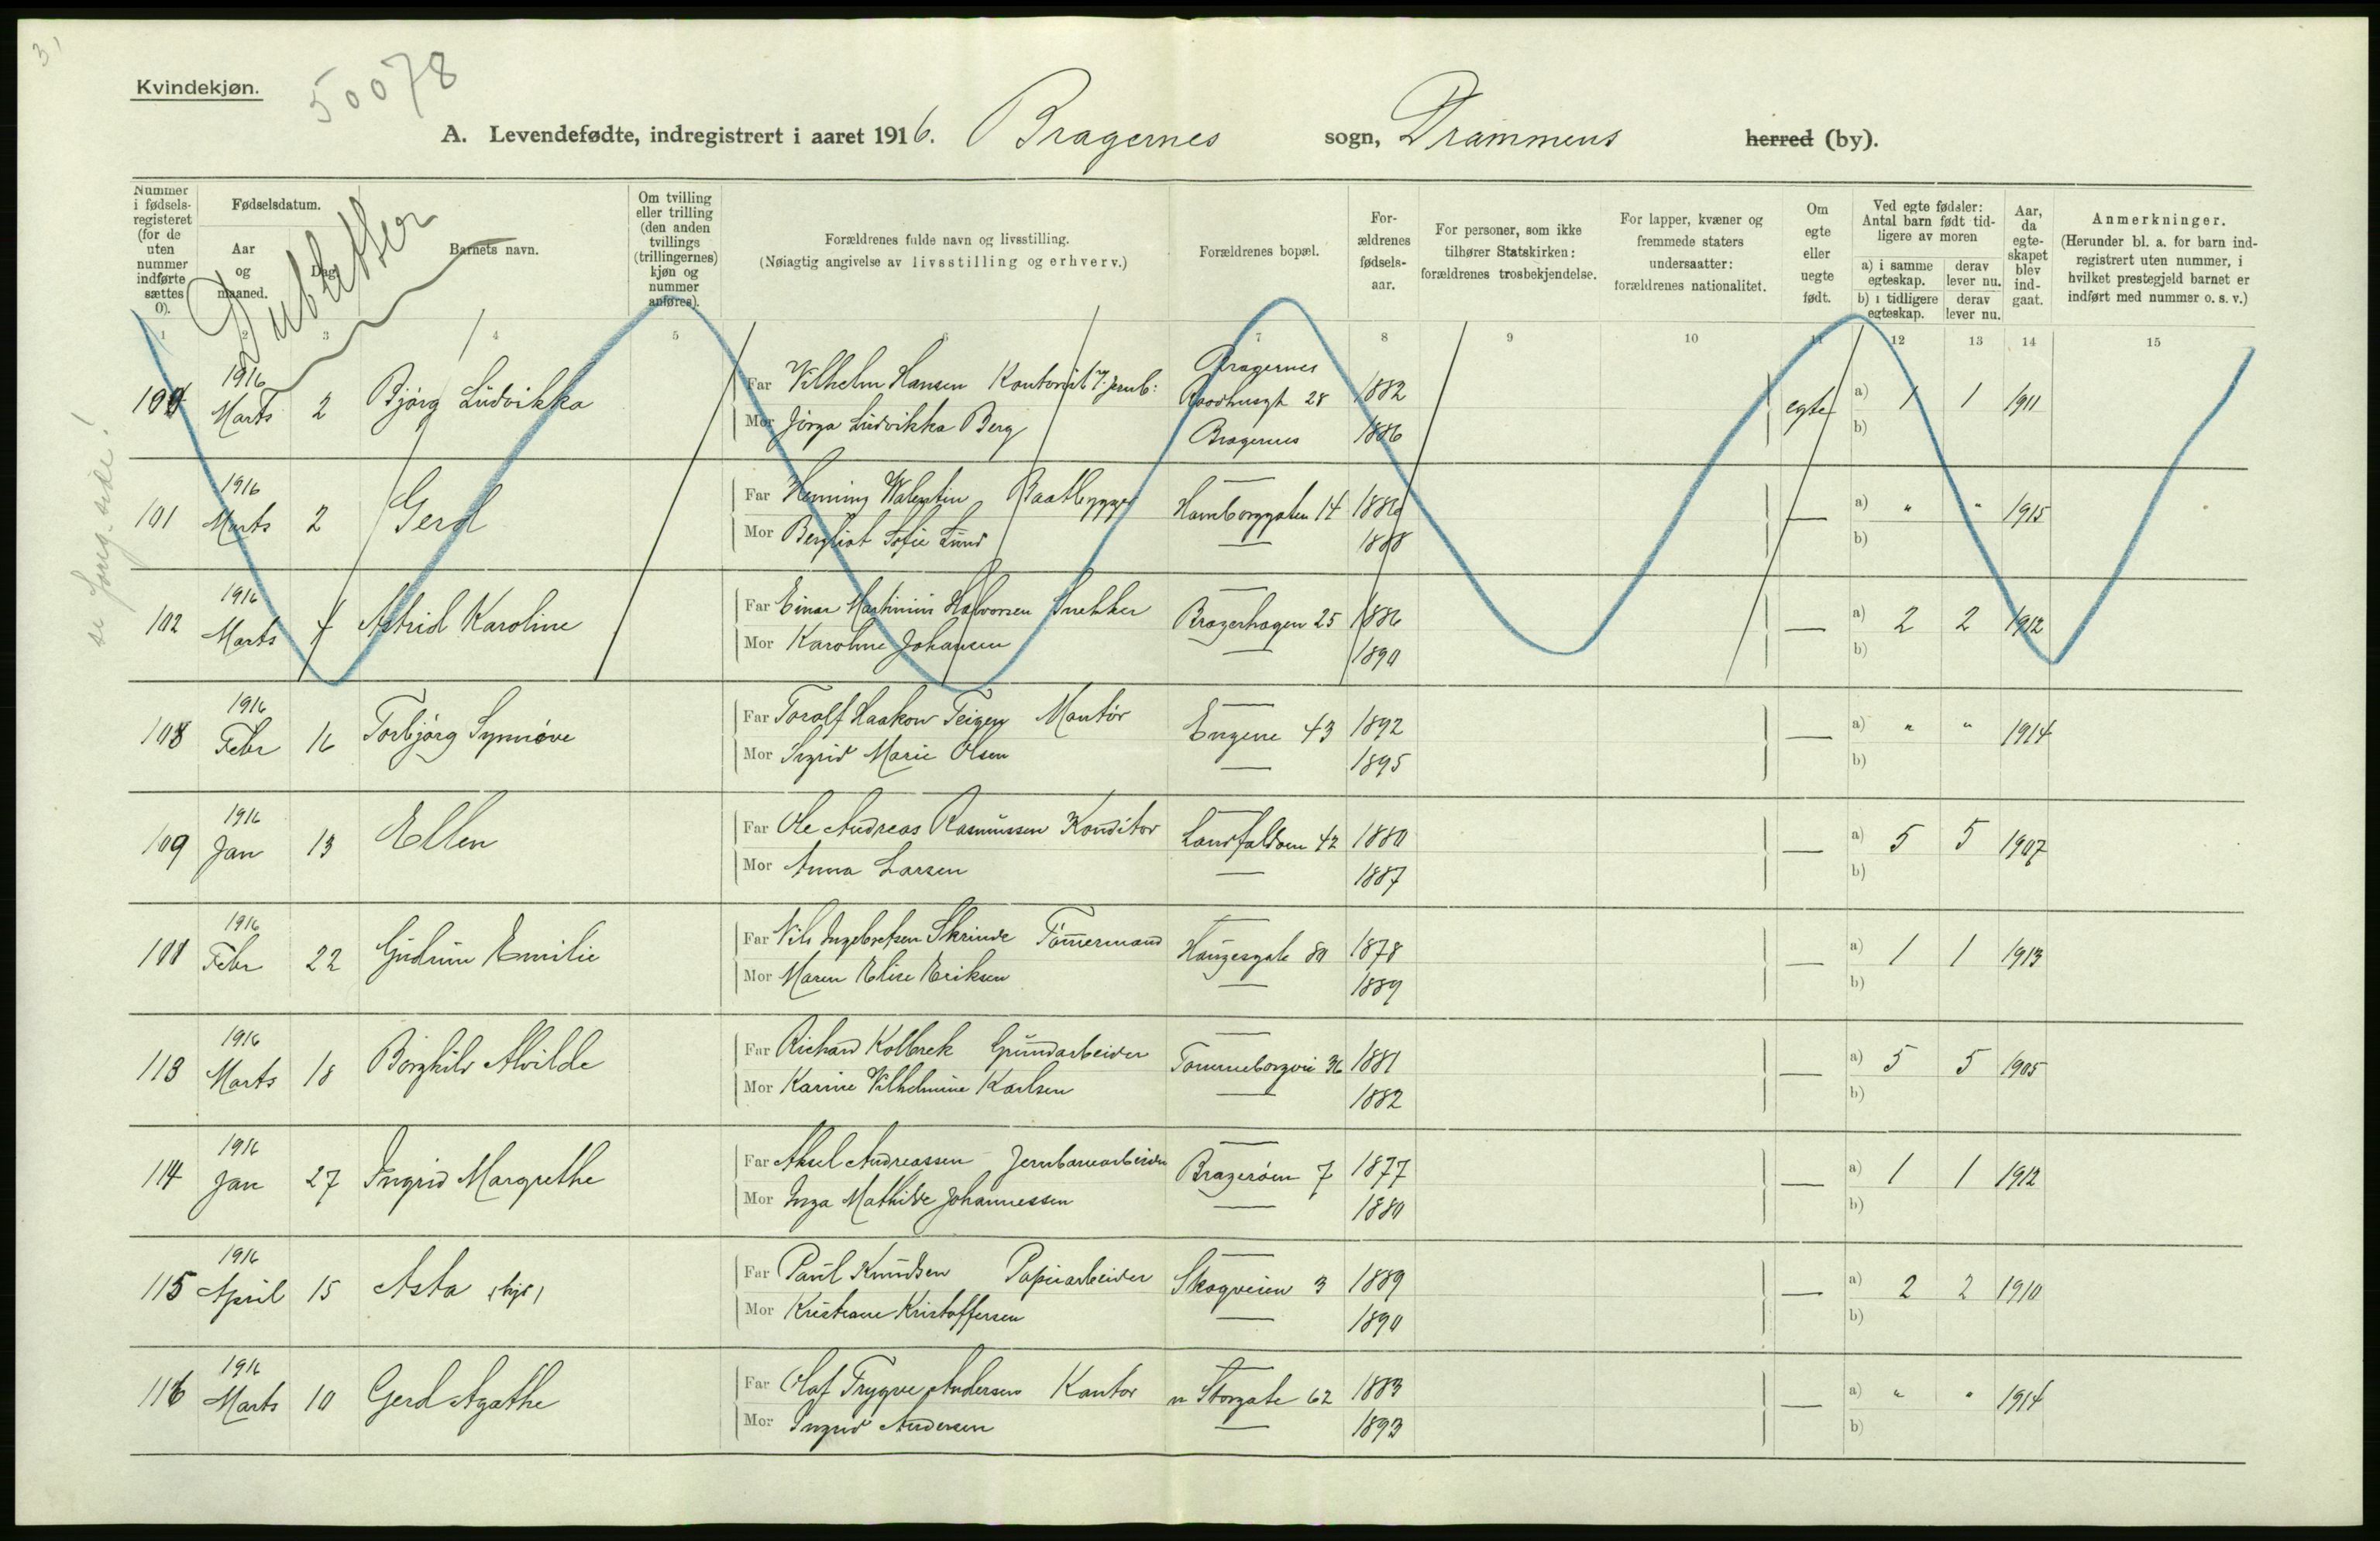 Kvindekjøn.
50078
A. Levendefødte, indregistrert i aaret 1916. Bragernes sogn, Drammens herred (by).
Nummer i fødsels-registeret (for de uten nummer indførte sættes 0).
Fødselsdatum.
Aar og maaned.
Dag.
Barnets navn.
Om tvilling eller trilling (den anden tvillings (trillingernes) kjøn og nummer anføres).
Forældrenes fulde navn og livsstilling.
(Nøiagtig angivelse av livsstilling og erhverv.)
Forældrenes bopæl.
For-ældrenes fødsels-aar.
For personer, som ikke tilhører Statskirken: forældrenes trosbekjendelse.
For lapper, kvæner og fremmede staters undersaatter: forældrenes nationalitet.
Om egte eller uegte født.
Ved egte fødsler: Antal barn født tid-ligere av moren
a) i samme egteskap. derav lever nu.
b) i tidligere egteskap. derav lever nu.
Aar, da egte-skapet blev ind-gaat.
Anmerkninger.
(Herunder bl. a. for barn ind-registrert uten nummer, i hvilket prestegjeld barnet er indført med nummer o. s. v.)
Dubletter
1 2 3 4 5 6 7 8 9 10 11 12 13 14 15
se forg. side!
1916 Marts 2 Bjørg Ludvikka
Far Vilhelm Hansen Bragernes Raadhusgt 28 1882 egte a) 1 1 1911
Mor Jørga Ludvikka Berg Bragernes 1886 b)
101 1916 Marts 2 Gerd
Far Henning Walentin Baatbygger Hamborggaten 14 1886 — a) " " 1915
Mor Bergliot Sofie Lund — 1888 b)
102 1916 Marts 4 Astrid Karoline
Far Einar Martinius Halvorsen Snekker Bragerhagen 25 1886 — a) 2 2 1912
Mor Karoline Johansen — 1890 b)
108 1916 Febr 16 Torbjørg Synnøve
Far Toralf Haakon Teigen Montør Engene 43 1892 — a) " " 1914
Mor Ingrid Marie Olsen — 1895 b)
109 1916 Jan 13 Ellen
Far Ole Andreas Rasmussen Konditor Landfaldøen 42 1880 — a) 5 5 1907
Mor Anna Larsen — 1887 b)
1916 Febr 22 Gudrun Emilie
Far Nils Ingebretsen Skrinde Tømmermand Haugesgate 80 1878 — a) 1 1 1913
Mor Maren Elise Eriksen — 1889 b)
113 1916 Marts 18 Borghild Alvilde
Far Richard Kolbrek Grundarbeider 36 1881 — a) 5 5 1905
Mor Karine Vilhelmine Karlsen — 1882 b)
114 1916 Jan 27 Ingrid Margrethe
Far Aksel Andreassen Jernbanearbeider Bragerøen 7 1877 — a) 1 1 1912
Mor Inga Mathilde Johannessen — 1880 b)
115 1916 April 15 Asta
Far Paul Knudsen Papirarbeider Skogveien 3 1889 — a) 2 2 1910
Mor Kristiane Kristoffersen — 1890 b)
116 1916 Marts 10 Gerd Agathe
Far Olaf Trygve Andersen Kantor n Storgate 62 1883 — a) " " 1914
Mor Ingrid Andersen — 1893 b)